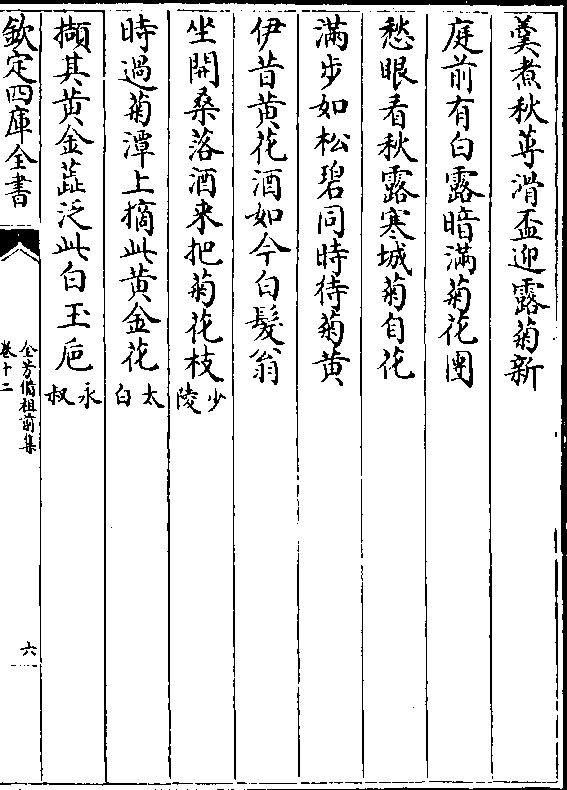 羹煮秋蓴滑盃迎露菊新
庭前有白露暗滿菊花團
愁眼看秋露寒城菊自花
滿步如松碧同時待菊黄
伊昔黄花酒如今白髮翁
坐開桑落酒来把菊花枝少陵
時過菊潭上摘此黄金花太白
擷其黄金蘂泛此白玉巵永叔
欽定四庫全書
全芳備祖前集
卷十二
六